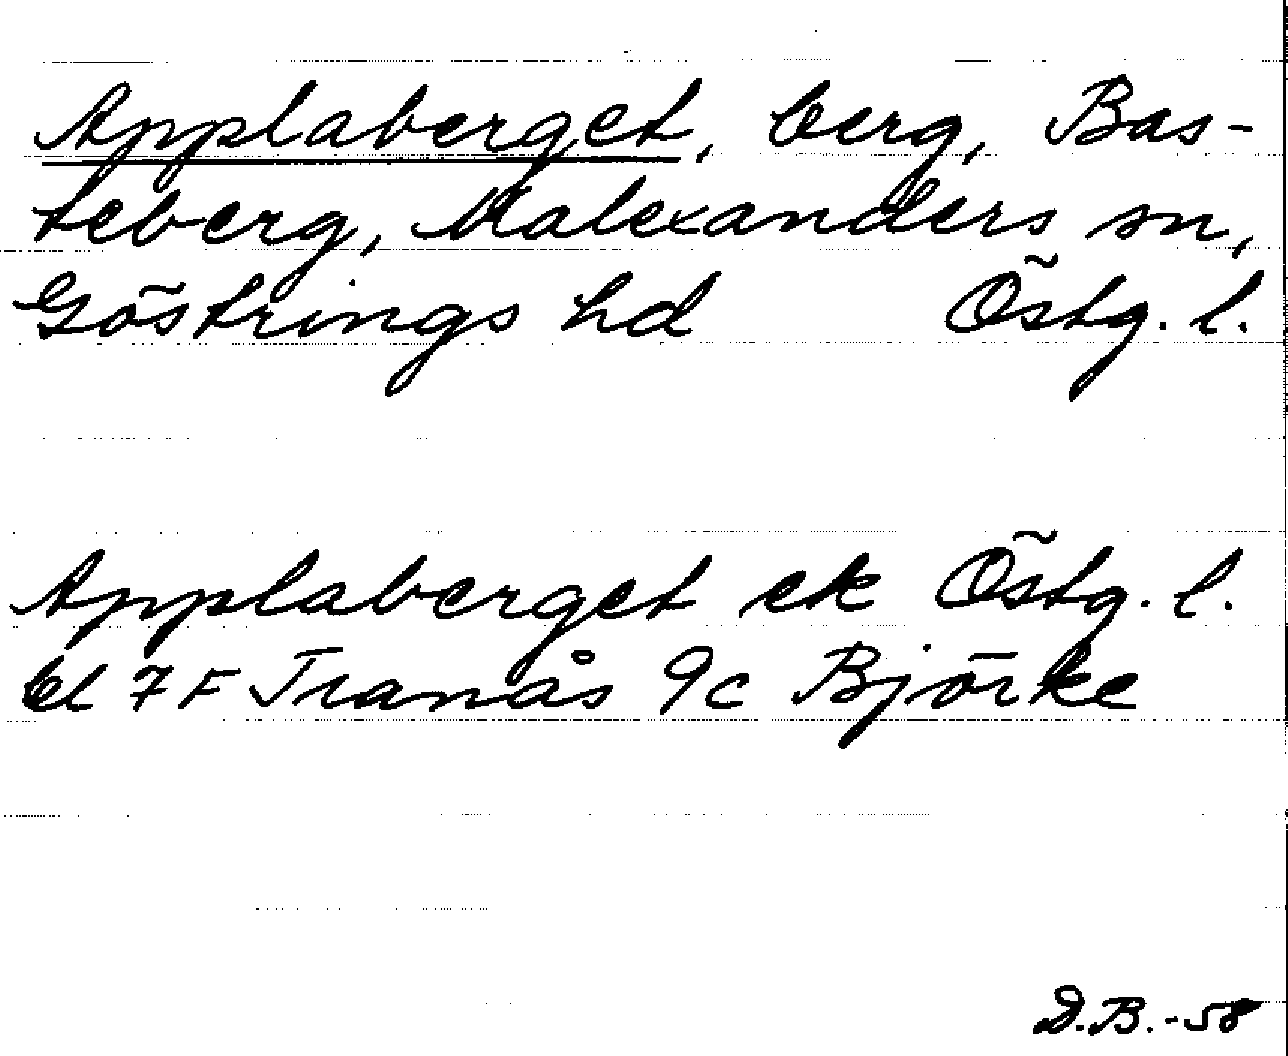 Applaberget, berg, Bas-
teberg, Malexanders sn,
Göstrings hd Östg. l.
Applaberget ek Östg. l.
bl 7 F Tranås 9c Björke
D.B.-58